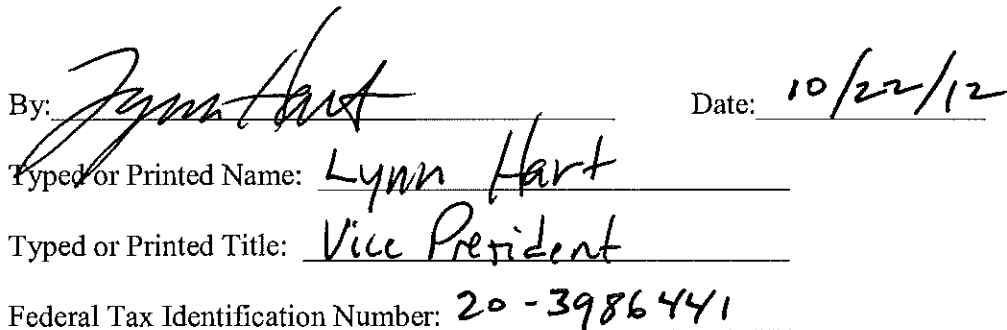 By: Lynn Hart Date: 10/22/12
Typed or Printed Name: Lynn Hart
Typed or Printed Title: Vice President
Federal Tax Identification Number: 20-3986441